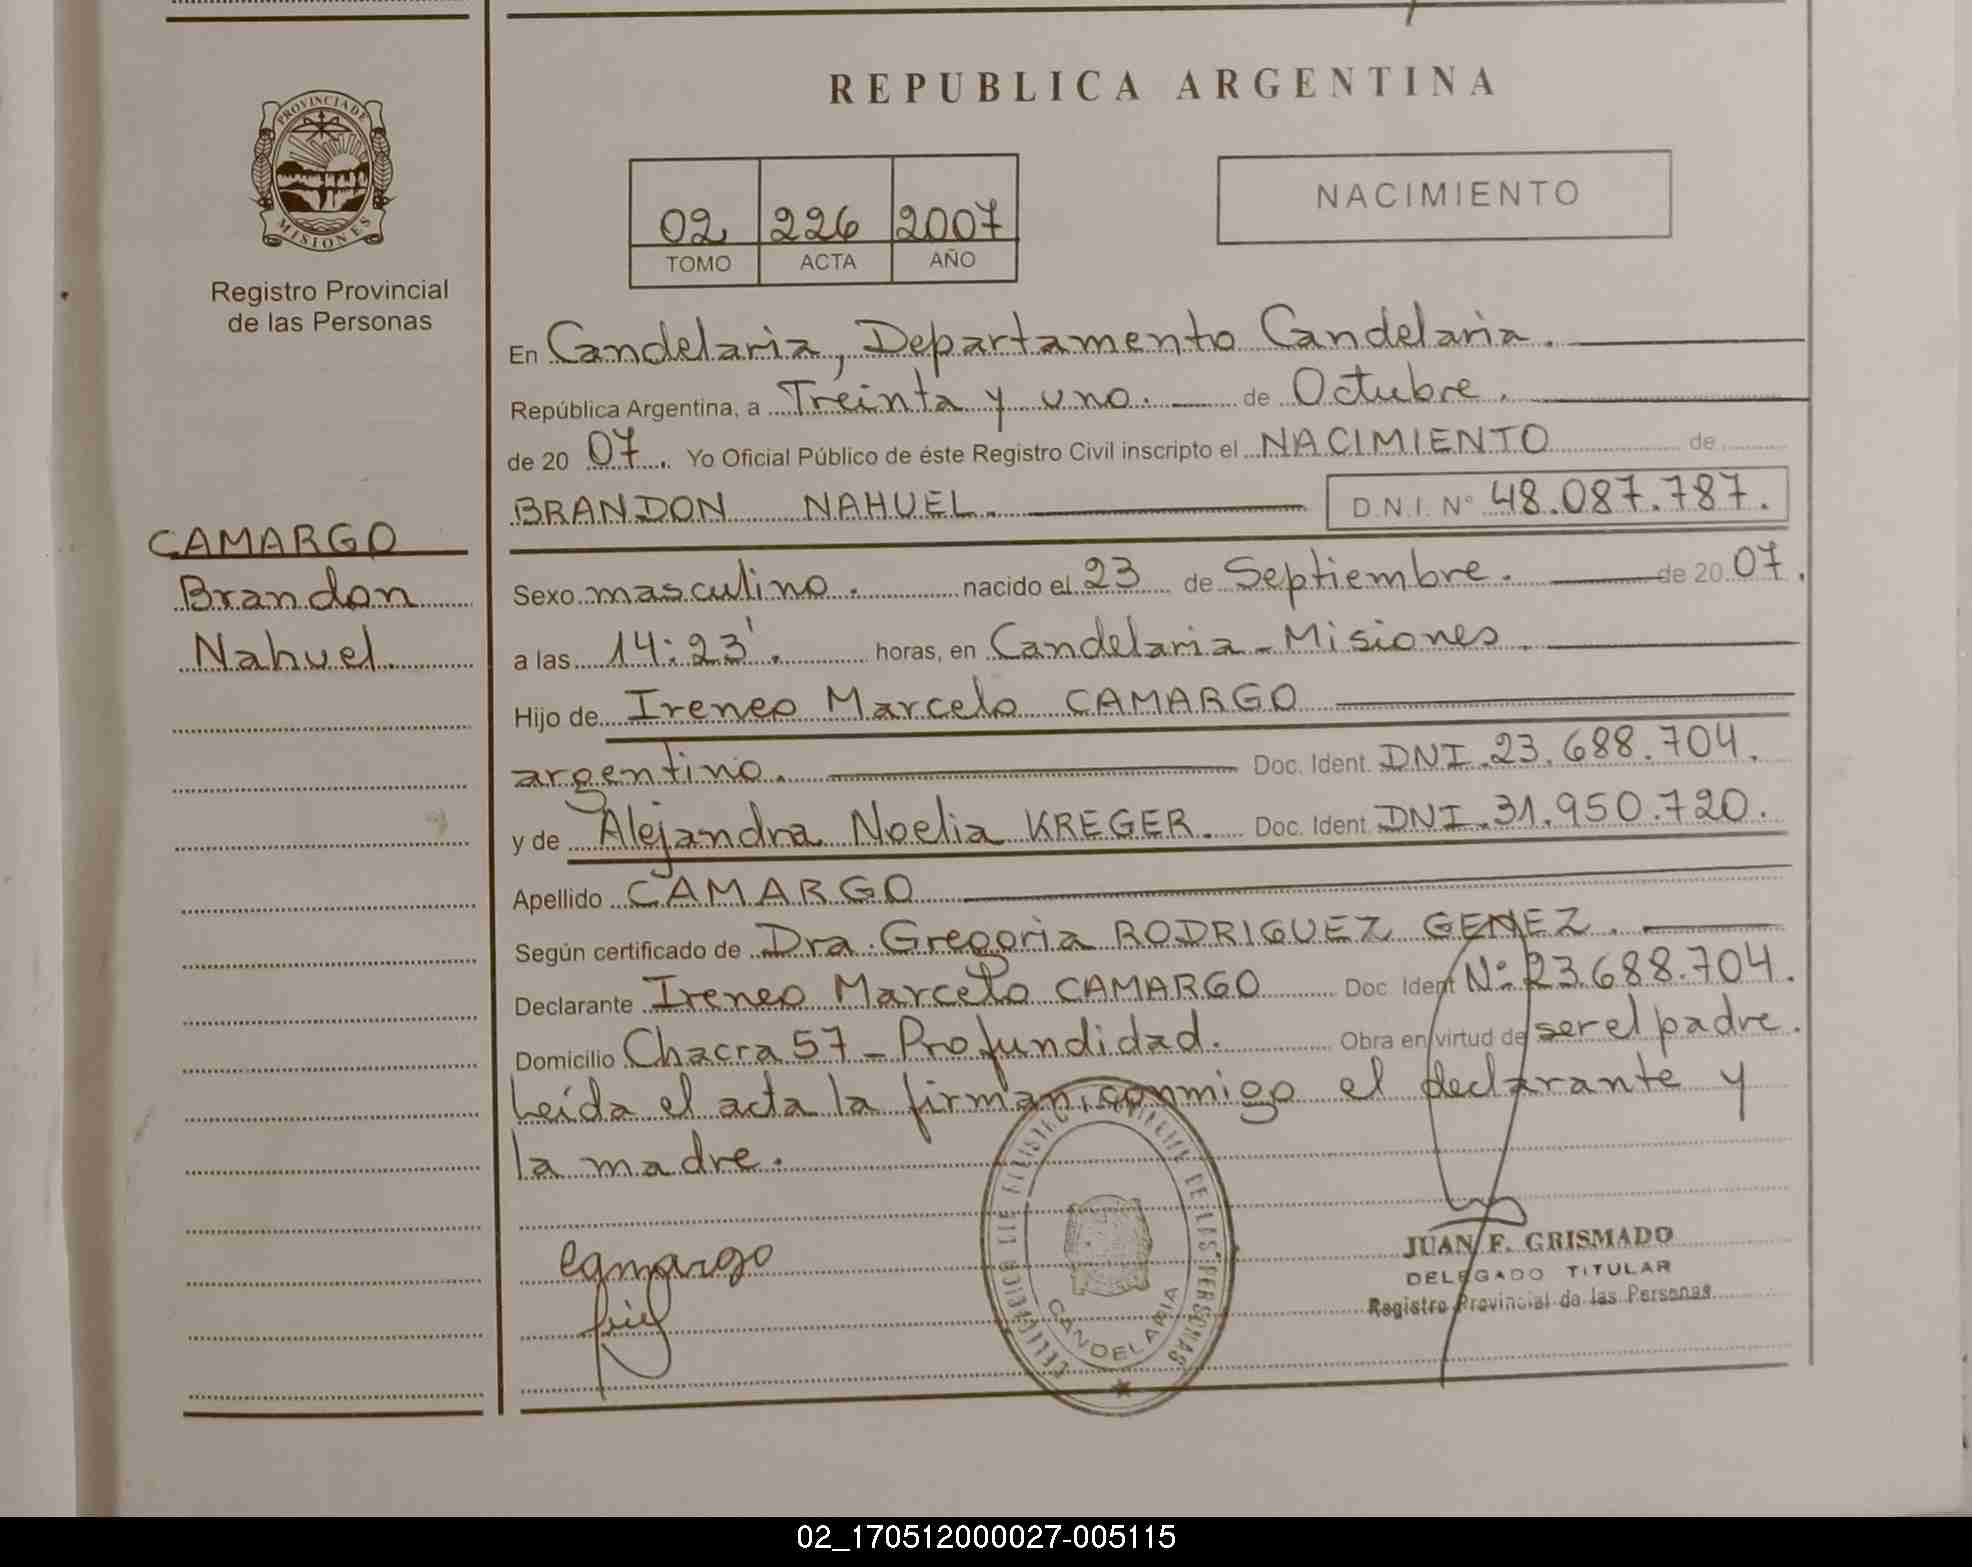 REPUBLICA ARGENTINA
PROVINCIA DE
MISIONES
Registro Provincial
de las Personas
NACIMIENTO
02 226 2007
TOMO ACTA AÑO
En Candelaria, Departamento Candelaria.
República Argentina, a Treinta y uno. de Octubre.
de 20 07. Yo Oficial Público de éste Registro Civil inscripto el NACIMIENTO de
BRANDON NAHUEL. D.N.I. Nº 48.087.787.
CAMARGO
Brandon
Nahuel
Sexo masculino. nacido el 23 de Septiembre. de 20 07.
a las 14:23'. horas, en Candelaria - Misiones.
Hijo de Ireneo Marcelo CAMARGO
argentino. Doc. Ident. DNI. 23.688.704.
y de Alejandra Noelia KREGER. Doc. Ident. DNI. 31.950.720.
Apellido CAMARGO
Según certificado de Dra. Gregoria RODRIGUEZ GENEZ.
Declarante Ireneo Marcelo CAMARGO Doc. Ident Nº 23.688.704.
Domicilio Chacra 57 - Profundidad. Obra en virtud de ser el padre.
Leída el acta la firman, conmigo el declarante y
la madre.
Camargo
DE LAS PERSONAS
CANDELARIA
JUAN F. GRISMADO
DELEGADO TITULAR
Registro Provincial de las Personas
02_170512000027-005115